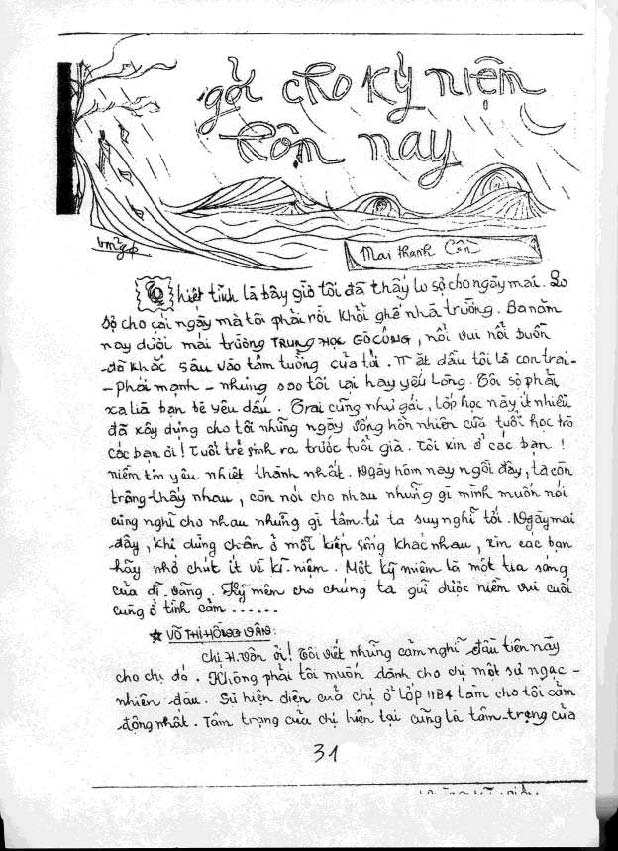 gởi cho kỷ niệm
hôn nay
Mai Thanh Côn
Thiệt tình là bây giờ tôi đã thấy lo sợ cho ngày mai. Lo
sợ cho cái ngày mà tôi phải rời khỏi ghế nhà trường. Ba năm
nay dưới mái trường TRUNG HỌC GÒ CÔNG, nỗi vui nỗi buồn
đã khắc sâu vào tâm tưởng của tôi. Mặt dầu tôi là con trai -
- phái mạnh - nhưng sao tôi lại hay yếu lòng. Tôi sợ phải
xa lìa bạn bè yêu dấu. Trai cũng như gái, lớp học này ít nhiều
đã xây dựng cho tôi những ngày sống hồn nhiên của tuổi học trò
các bạn ơi! Tuổi trẻ sinh ra trước tuổi già. Tôi xin ở các bạn!
niềm tin yêu nhiệt thành nhất. Ngày hôm nay ngồi đây, ta còn
trông thấy nhau, còn nói cho nhau những gì mình muốn nói
cùng nghĩ cho nhau những gì tâm tư ta suy nghĩ tới. Ngày mai
đây, khi dừng chân ở mỗi kiếp sống khác nhau, xin các bạn
hãy nhớ chút ít về kĩ niệm. Một kỹ niệm là một tia sáng
của dĩ vãng. Kỹ mên cho chúng ta giữ được niềm vui cuối
cùng ở tình cảm ......
★ VÕ THỊ HỒNG VÂN:
Chị H. Vân ơi! Tôi viết những cảm nghĩ đầu tiên này
cho chị đó. Không phải tôi muốn dành cho chị một sự ngạc -
nhiên đâu. Sự hiện diện của chị ở lớp 11B4 làm cho tôi cảm
động nhất. Tâm trạng của chị hiện tại cũng là tâm trạng của
31